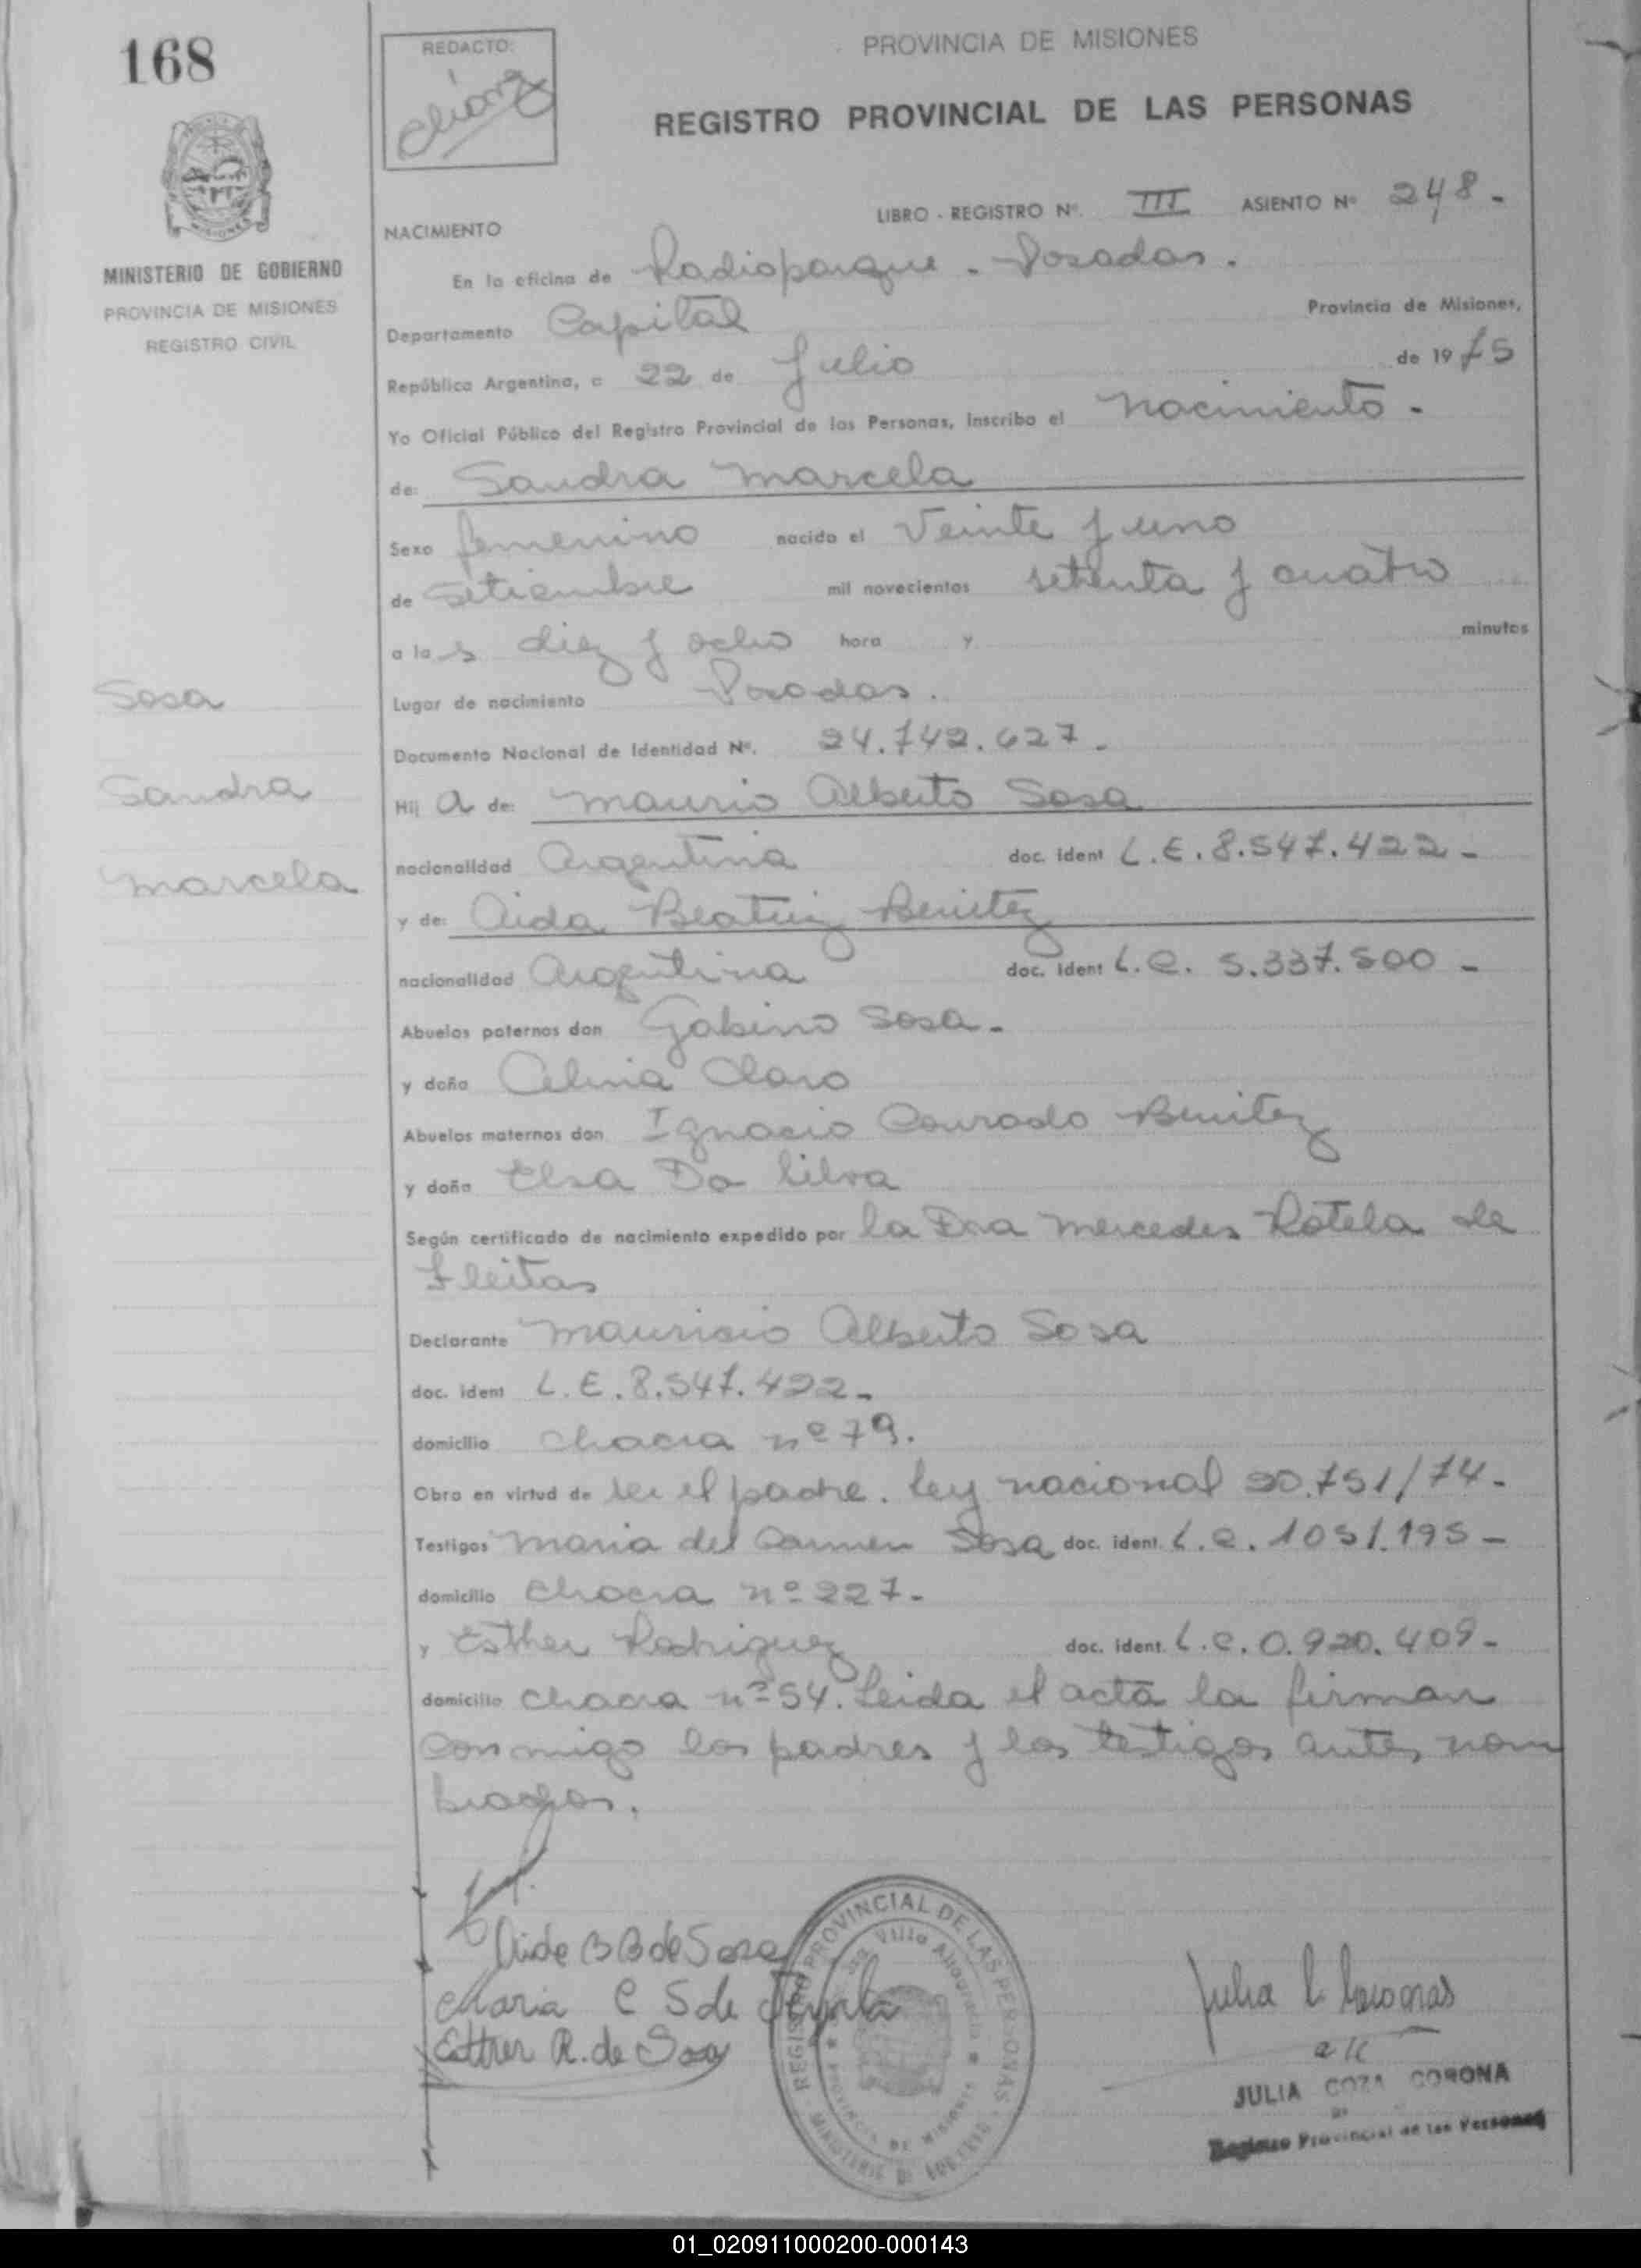 168
REDACTO:
PROVINCIA DE MISIONES
REGISTRO PROVINCIAL DE LAS PERSONAS
MINISTERIO DE GOBIERNO
PROVINCIA DE MISIONES
REGISTRO CIVIL
LIBRO - REGISTRO Nº. III ASIENTO Nº 248-
NACIMIENTO
En la oficina de Radioparque - Posadas.
Departamento Capital Provincia de Misiones,
República Argentina, a 22 de Julio de 1975
Yo Oficial Público del Registro Provincial de las Personas, inscribo el nacimiento.
de: Sandra Marcela
Sexo femenino nacido el veinte y uno
de setiembre mil novecientos setenta y cuatro
a las diez y ocho hora y minutos
Lugar de nacimiento Posadas.
Documento Nacional de Identidad Nº. 24.742.627.
Hij a de: Maurio Alberto Sosa
nacionalidad Argentina doc. ident L.E. 8.547.422-
y de: Aida Beatriz Benitez
nacionalidad Argentina doc. ident L.C. 5.337.500-
Abuelos paternos don Gabino Sosa-
y doña Celina Claro
Abuelos maternos don Ignacio Conrado Benitez
y doña Elsa Da Silva
Según certificado de nacimiento expedido por la Dra Mercedes Rotela de
Fleitas
Declarante Mauricio Alberto Sosa
doc. ident L.E. 8.547.422-
domicilio chacra nº 79.
Obra en virtud de ser el padre. Ley nacional 20.751/74-
Testigos Maria del Carmen Sosa doc. ident. L.C. 1051.195-
domicilio Chacra nº 227-
y Esther Rodriguez doc. ident. L.C. 0.920.409-
domicilio chacra nº 54. Leida el acta la firman
conmigo los padres y los testigos antes nom
brados.
Sosa
Sandra
Marcela
Aide B B de Sosa
Maria C S de
Esther R. de Sosa
REGISTRO PROVINCIAL DE LAS PERSONAS
MINISTERIO DE GOBIERNO
PROVINCIA DE MISIONES
Julia
JULIA CORONA
Registro Provincial de las Personas
01_020911000200-000143